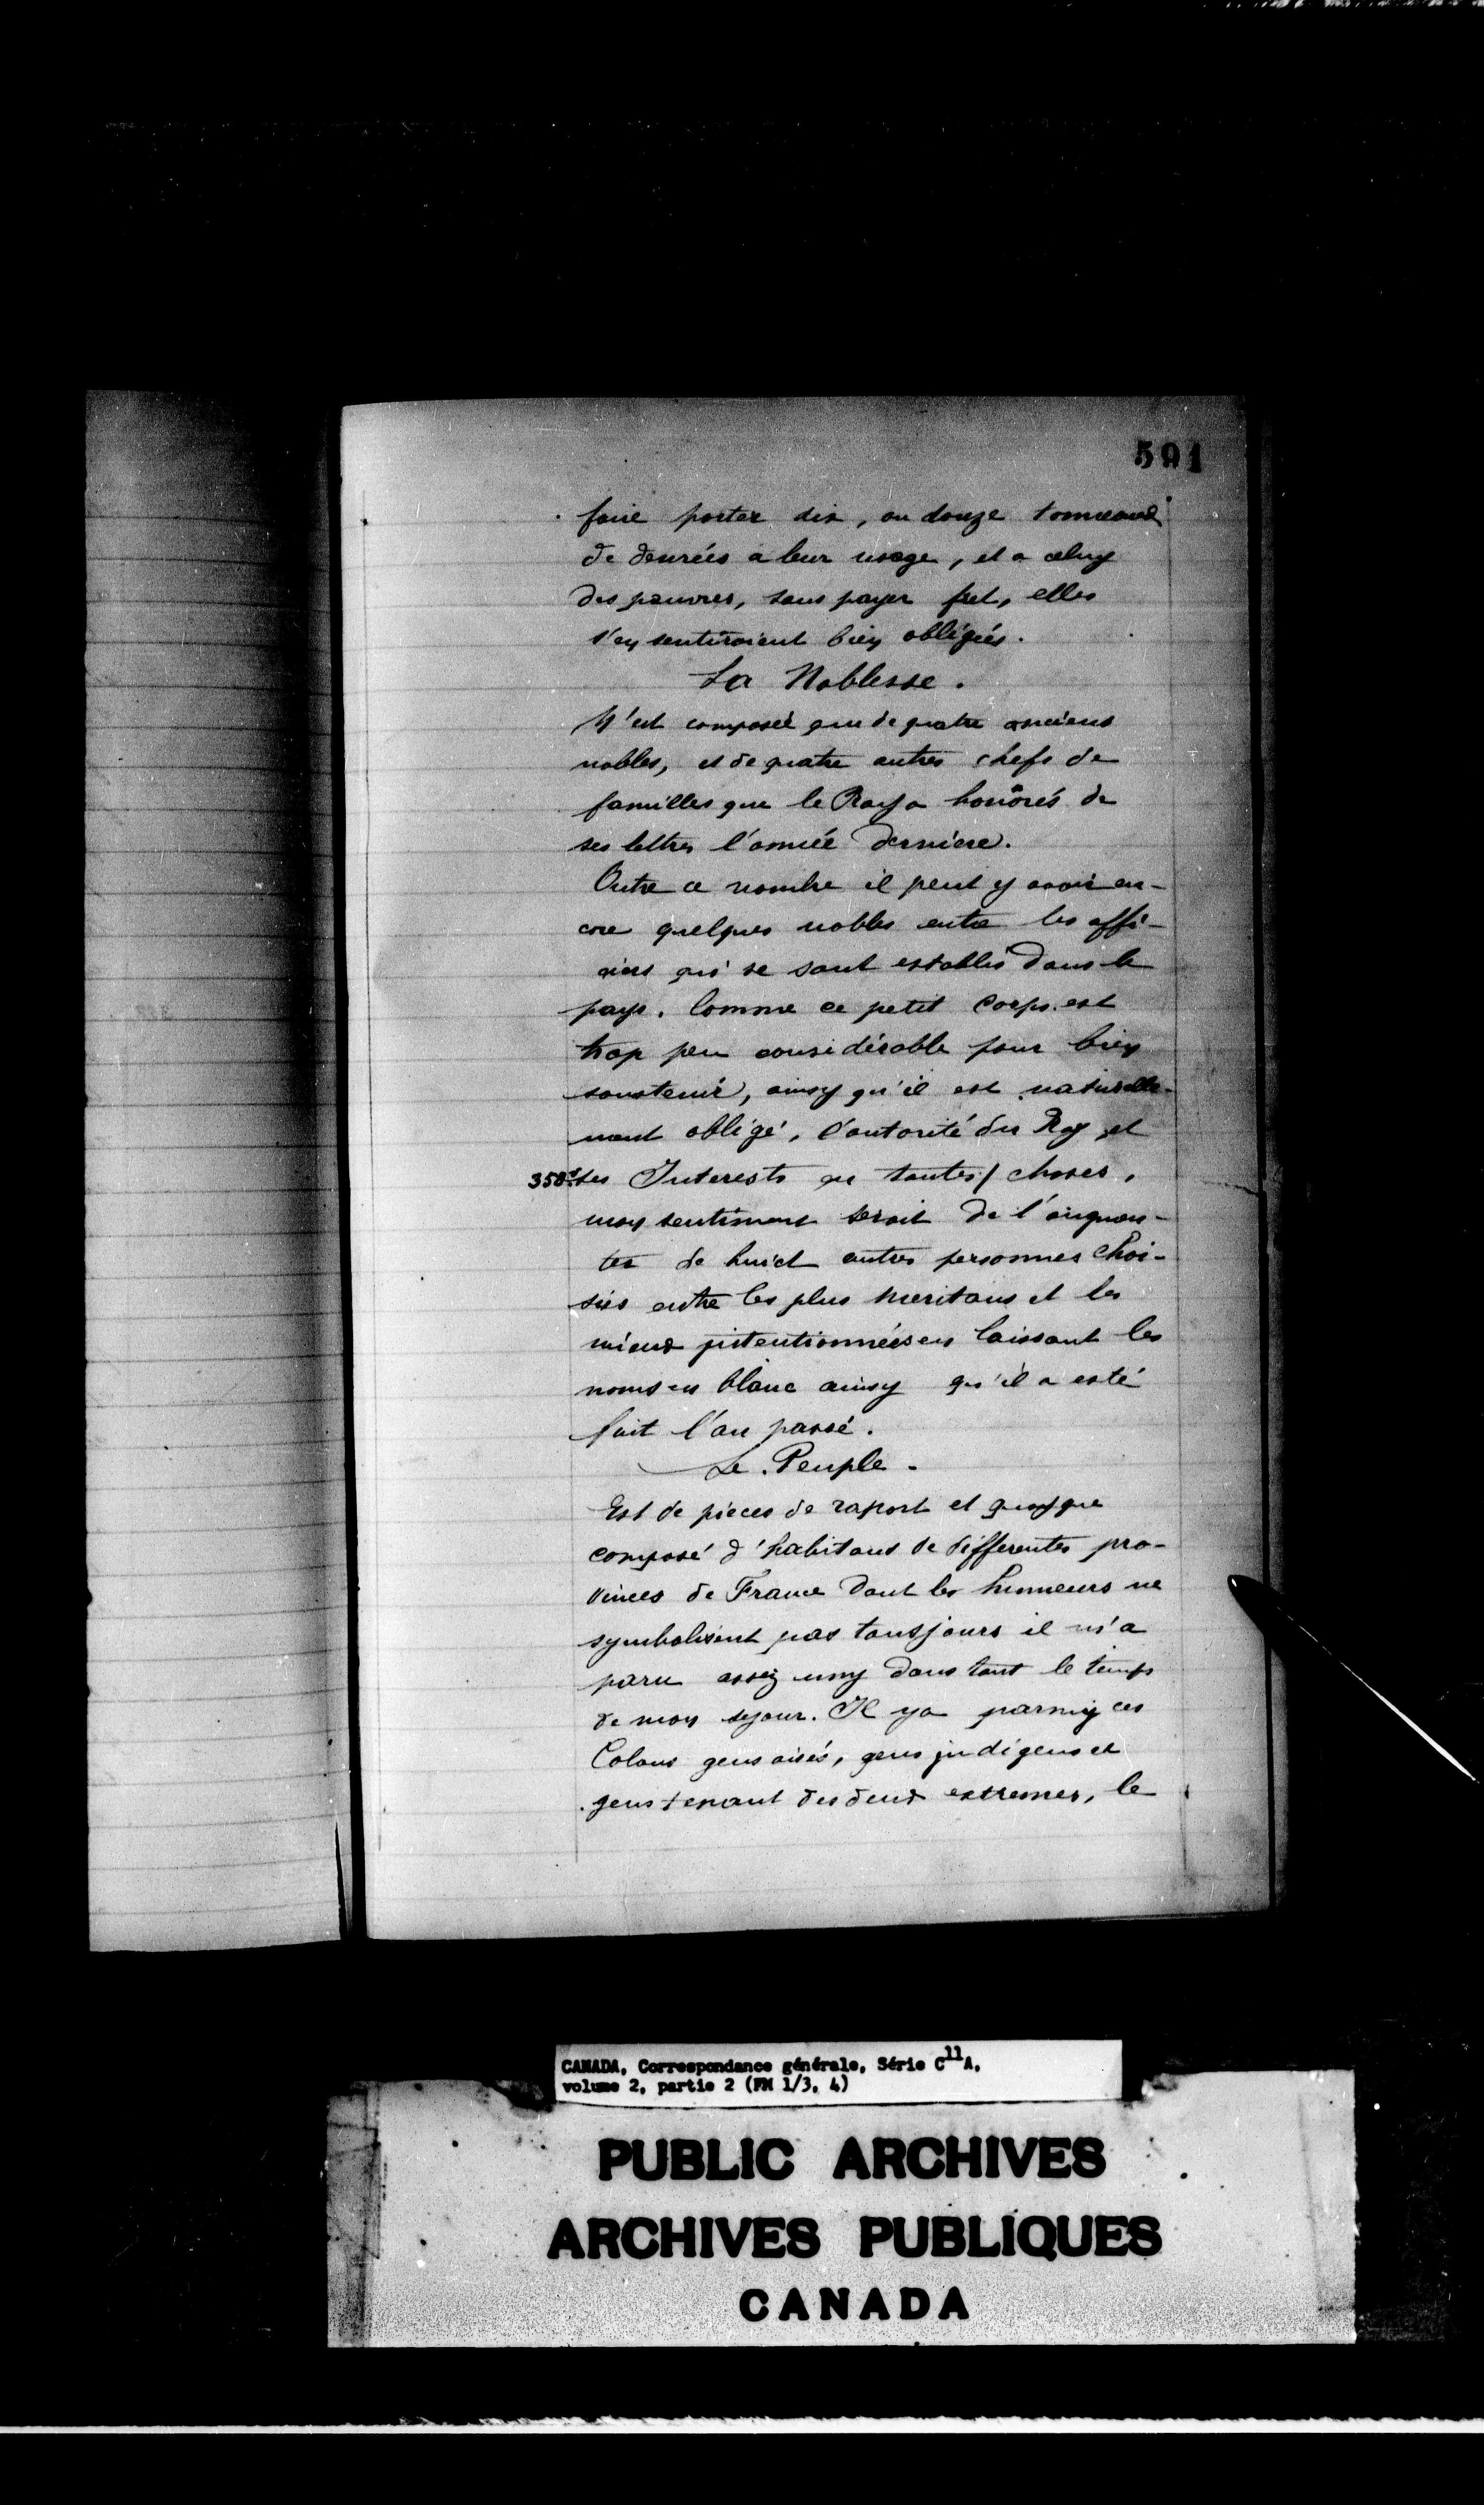 591
faire porter dix, ou douze tonneaux
de denrées a leur usage, et a celuy
des pauvres, sans payer fret, elles
s'en sentiroient bien obligées.
La Noblesse.
N'est composée que de quatre anciens
nobles, et de quatre autres chefs de
familles que le Roy a honorés de
ses lettres l'année derniere.
Outre ce nombre il peut y avoir en-
core quelques nobles entre les offi-
ciers qui se sont establis dans le
pays. Comme ce petit Corps est
trop peu considérable pour bien
soustenir, ainsy qu'il est naturelle-
ment obligé, l'autorité du Roy et
358 ses Interests en toutes/ choses,
mon sentiment seroit de l'augmen-
ter de huict autres personnes choi-
sies entre les plus meritans et les
mieux intentionnées en laissant les
noms en blanc ainsy qu'il a esté
fait l'an passé.
Le Peuple.
Est de pieces de raport et quoyque
composé d'habitans de differentes pro-
vinces de France dont les humeurs ne
symbolisent pas tousjours il m'a
paru assez uny dans tout le temps
de mon sejour. Il y a parmy ces
Colons gens aisés, gens indigens et
gens tenant des deux extremes, le
CANADA, Correspondance générale, Série C11A,
volume 2, partie 2 (FM 1/3, 4)
PUBLIC ARCHIVES
ARCHIVES PUBLIQUES
CANADA